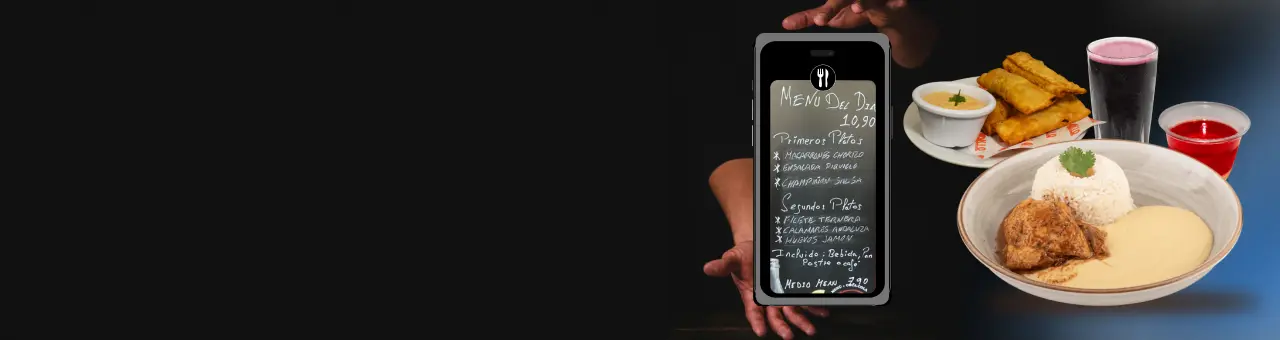 MENU DEL DIA
10,90
Primeros Platos
* MACARRONES CHORIZO
* ENSALADA
* CHAMPIÑON SALSA
Segundos Platos
* FILETE TERNERA
* CALAMARES ANDALUZA
* HUEVOS JAMON
Incluido: Bebida, Pan
Postre o café
MEDIO MENU 7,90